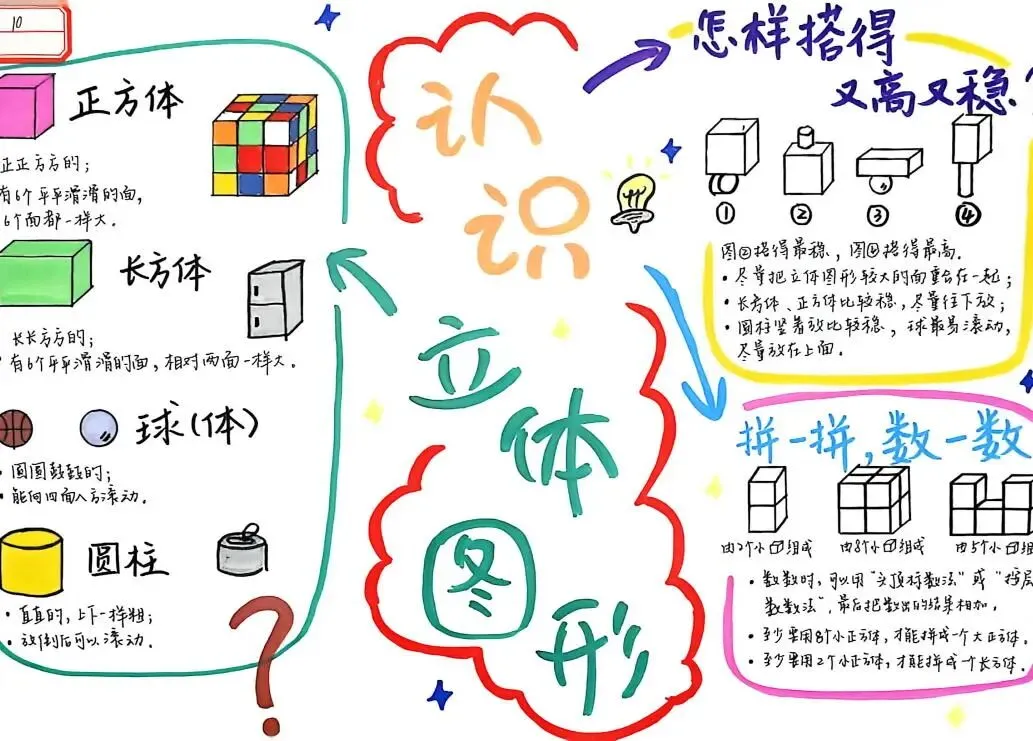 10
认识
立体
图形
正方体
正正方方的；
有6个平平滑滑的面，
6个面都一样大。
长方体
长长方方的；
有6个平平滑滑的面，相对两面一样大。
球(体)
圆圆鼓鼓的；
能向四面八方滚动。
圆柱
直直的，上下一样粗；
放倒后可以滚动。
?
怎样搭得
又高又稳?
① ② ③ ④
图②搭得最稳、图④搭得最高。
尽量把立体图形较大的面重合在一起；
长方体、正方体比较稳，尽量往下放；
圆柱竖着放比较稳，球最易滚动，
尽量放在上面。
拼一拼，数一数
由2个小 组成 由8个小 组成 由5个小 组
数数时，可以用"头顶标数法"或"按层
数数法"，最后把数出的结果相加。
至少要用8个小正方体，才能拼成一个大正方体。
至少要用2个小正方体，才能拼成一个长方体。